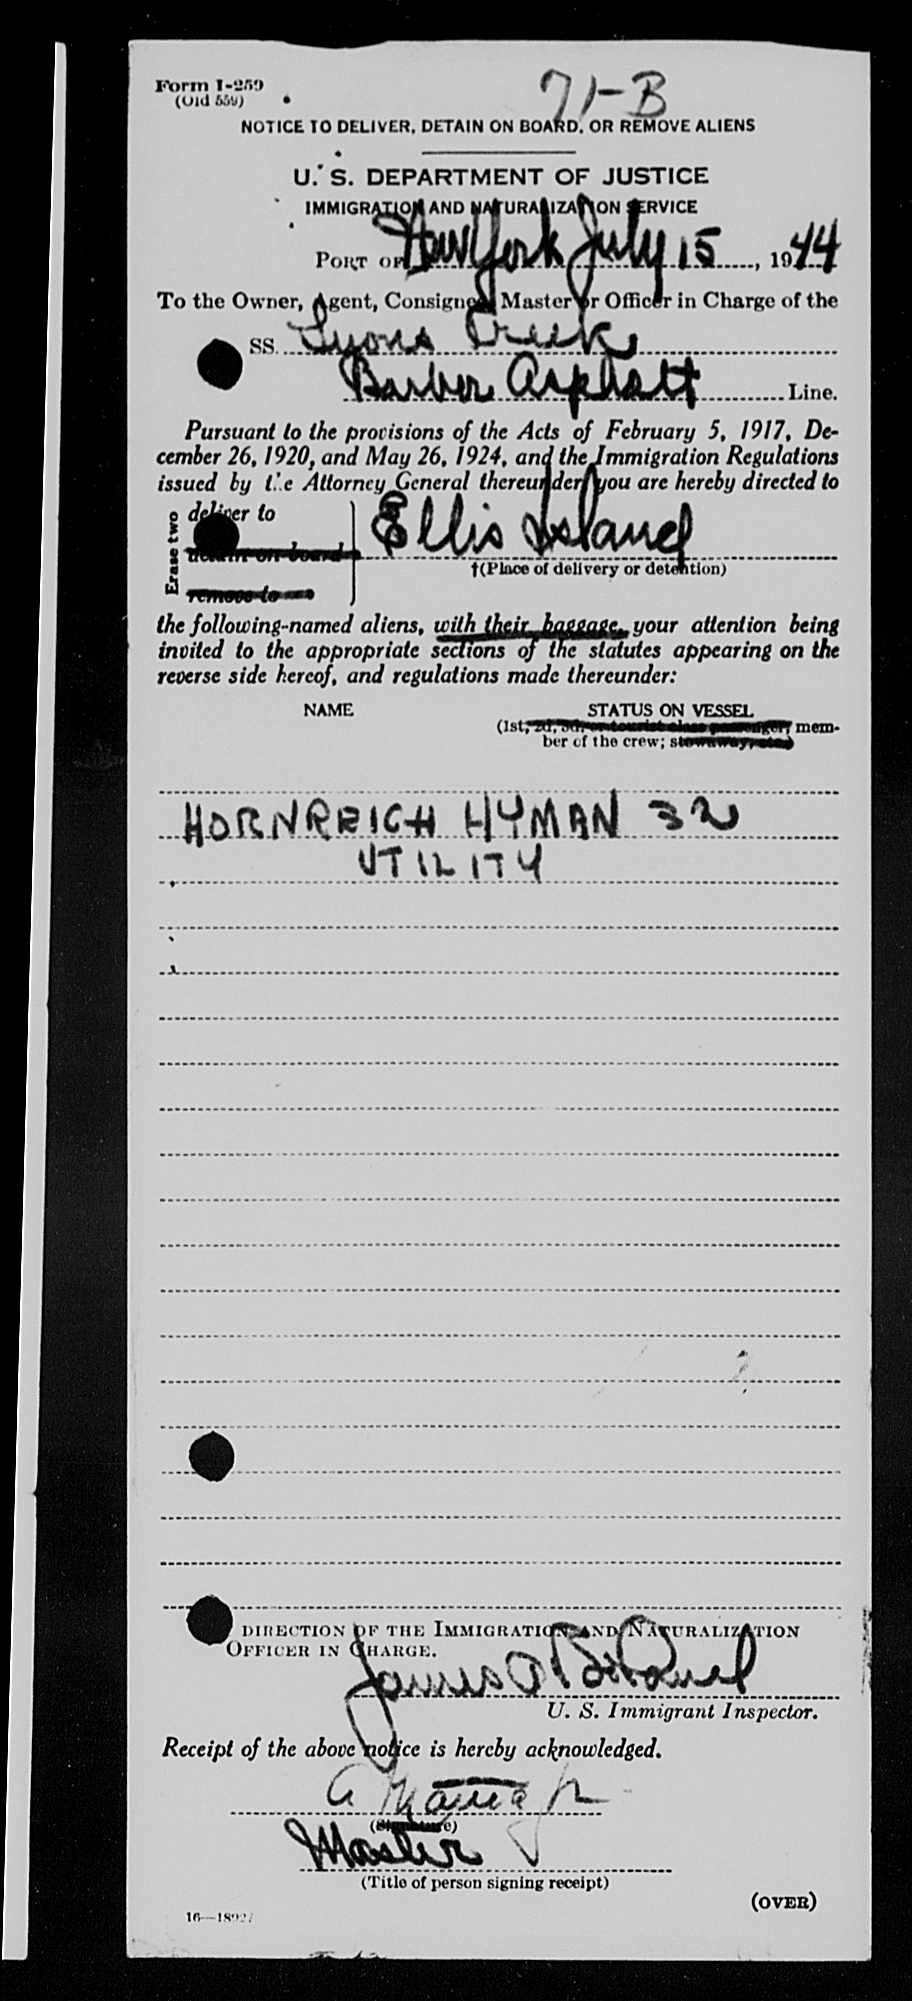 Form I-259
(Old 559)
71-B
NOTICE TO DELIVER, DETAIN ON BOARD, OR REMOVE ALIENS
U. S. DEPARTMENT OF JUSTICE
IMMIGRATION AND NATURALIZATION SERVICE
PORT OF New York July 15, 1944
To the Owner, Agent, Consignee, Master or Officer in Charge of the
SS. Lyons Creek
Barber Asphalt Line.
Pursuant to the provisions of the Acts of February 5, 1917, De-
cember 26, 1920, and May 26, 1924, and the Immigration Regulations
issued by the Attorney General thereunder, you are hereby directed to
Erase two
deliver to
detain on board
remove to
Ellis Island
†(Place of delivery or detention)
the following-named aliens, with their baggage, your attention being
invited to the appropriate sections of the statutes appearing on the
reverse side hereof, and regulations made thereunder:
NAME STATUS ON VESSEL
(1st, 2d, 3d, or tourist class passenger, mem-
ber of the crew; stowaway, etc.)
HORNREICH HYMAN 32
UTILITY
DIRECTION OF THE IMMIGRATION AND NATURALIZATION
OFFICER IN CHARGE.
James
U. S. Immigrant Inspector.
Receipt of the above notice is hereby acknowledged.
(Signature)
Master
(Title of person signing receipt)
(OVER)
16—18927